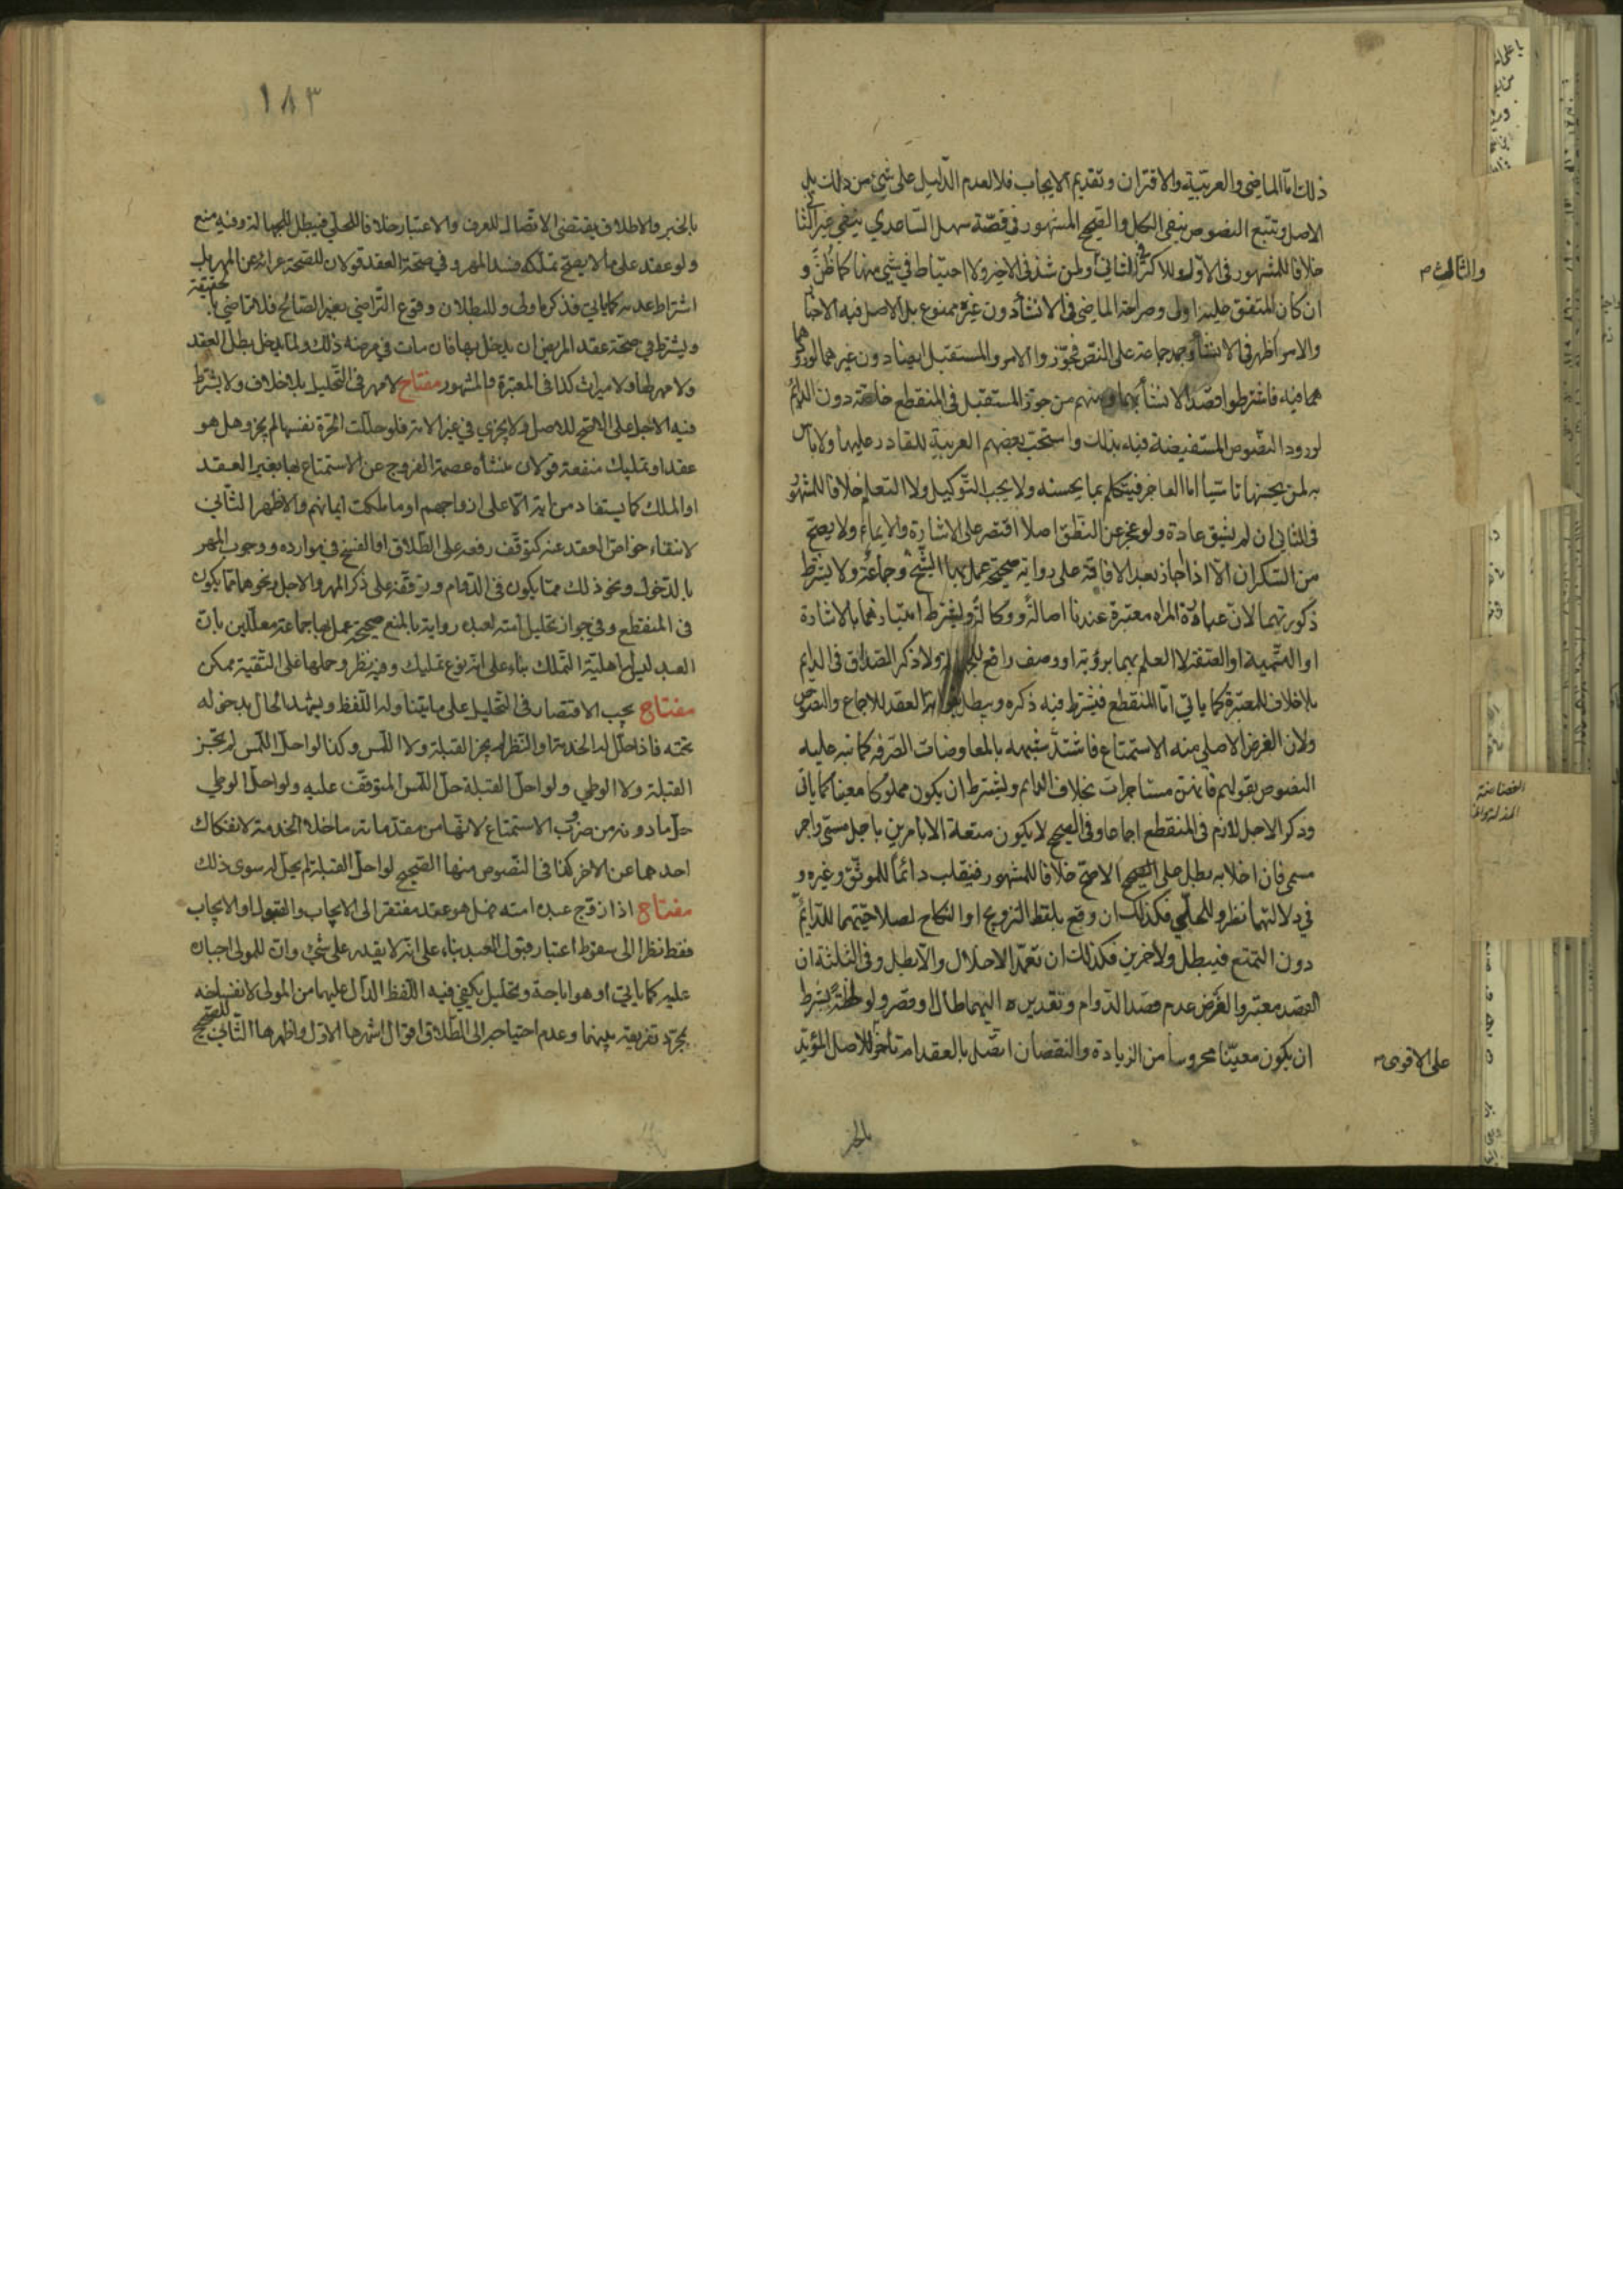 ذلك اما الماضي والعربية والاقتران وتقديم الايجاب فلا لعدم الدليل على شيء من ذلك بل
الاصل وتتبع النصوص ينفي الكل والصحيح المشهور في قصة سهل الساعدي ينفي خير الثا
خلافا للمشهور في الاول وللاكثر في الثاني ولمن شذ في الاخير ولا احتياط في شيء منها كما ظن و
والثالث
ان كان المتفق عليه اولى وصراحة الماضي في الانشاء دون غيره ممنوع بل الاصل فيه الاخبا
والامر اظهر في الانشاء وجمد جماعة على النص فجوزوا الامر والمستقبل ايضا دون غيرهما لورود
هما فيه فاشترطوا قصد الانشاء بهما ومنهم من جوز المستقبل في المنقطع خاصة دون الدائم
لورود النصوص المستفيضة فيه بذلك واستحب بعضهم العربية للقادر عليها ولا باس
به لمن يحسنها تاسيا اما العاجز فيتكلم بما يحسنه ولا يجب التوكيل ولا التعلم خلافا للمشهور
في الثاني ان لم يشق عادة ولو عجز عن النطق اصلا اقتصر على الاشارة والايماء ولا يصح
من السكران الا اذا اجاز بعد الافاقة على رواية صحيحة عمل بها الشيخ وجماعة ولا يشترط
ذكوريتهما لان عبارة المراة معتبرة عندنا اصالة ووكالة ويشترط امتيازهما بالاشارة
او التسمية او الصفة لا العلم بهما برؤية او وصف رافع للجهالة ولا ذكر الصداق في الدايم
بلا خلاف للمعتبرة كما ياتي اما المنقطع فيشترط فيه ذكره ويبطل بفواته العقد للاجماع والنصوص
ولان الغرض الاصلي منه الاستمتاع فاشتد شبهه بالمعاوضات الصرفة كما نبه عليه
النصوص بقولهم فانهن مستاجرات بخلاف الدايم ويشترط ان يكون مملوكا معينا كما ياتي
وذكر الاجل لازم في المنقطع اجماعا وفي الصحيح لا يكون متعة الا بامرين باجل مسمى واجر
مسمى فان اخلا به بطل على الصحيح الاصح خلافا للمشهور فينقلب دائما للموثق وغيره و
في دلالتهما نظر وللحلي فكذلك ان وقع بلفظ التزويج او النكاح لصلاحيتهما للدايم
دون التمتع فيبطل ولاخرين فكذلك ان تعمد الاخلال والا بطل وفي الثلثة ان
القصد معتبر والفرض عدم قصد الدوام وتقديره اليهما طال او قصر ولو لحظة بشرط
ان يكون معينا محروسا من الزيادة والنقصان اتصل بالعقد ام تاخر للاصل المؤيد
على الاقوى
بالخبر
١٨٣
بالخبر والاطلاق يقتضي الاتصال للعرف والاعتبار خلافا للحلي فيبطل للجهالة وفيه منع
ولو عقد على ما لا يصح تملكه فسد المهر وفي صحة العقد قولان للصحة عرائه عن المهر بل
اشتراط عدمه كما ياتي فذكره اولى وللبطلان وقوع التراضي بغير الصالح فلا تراضي حقيقة
ويشترط في صحة عقد المريض ان يدخل بها فان مات في مرضه ذلك ولما يدخل بطل العقد
ولا مهر لها ولا ميراث كذا في المعتبرة والمشهور مفتاح لا مهر في التحليل بلا خلاف ولا يشترط
فيه الاجل على الاصح للاصل ولا يجزي في غير الامة فلو حللت الحرة نفسها لم يجز وهل هو
عقد او تمليك منفعة قولان منشاه عصمة الفروج عن الاستمتاع بها بغير العقد
او الملك كما يستفاد من اية الا على ازواجهم او ما ملكت ايمانهم والاظهر الثاني
لانتفاء خواص العقد عنه كتوقف رفعه على الطلاق او الفسخ في موارده ووجوب المهر
بالدخول ونحو ذلك مما يكون في الدوام وتوقفه على ذكر المهر والاجل ونحوهما مما يكون
في المنقطع وفي جواز تحليل امته لعبده رواية بالمنع صحيحة عمل بها جماعة معللين بان
العبد ليس اهلية التملك بناء على انه نوع تمليك وفيه نظر وحملها على التقية ممكن
مفتاح يجب الاقتصار في التحليل على ما يتناوله اللفظ ويشهد الحال بدخوله
تحته فاذا حلل له الخدمة او النظر لم يجز القبلة ولا اللمس وكذا لو احل اللمس لم تجز
القبلة ولا الوطي ولو احل القبلة حل اللمس المتوقفت عليه ولو احل الوطي
حل ما دونه من ضروب الاستمتاع لانها من مقدماته ما خلا الخدمة لانفكاك
احدهما عن الاخر كذا في النصوص منها الصحيح لو احل القبلة لم يحل له سوى ذلك
مفتاح اذا زوج عبده امته فهل هو عقد مفتقر الى الايجاب والقبول او الايجاب
فقط نظرا الى سقوط اعتبار قبول العبد بناء على انه لا يقدر على شيء وان للمولى اجباره
عليه كما ياتي او هو اباحة وتحليل يكفي فيه اللفظ الدال عليها من المولى لانفساخه
بمجرد تفريقه بينهما وعدم احتياجه الى الطلاق اقوال اشهرها الاول واظهرها الثاني للصحيح